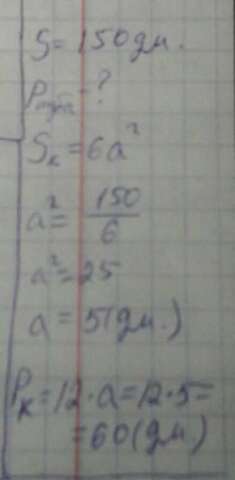 S = 150 дм.
Pкуба - ?
Sк = 6a²
a² = 150/6
a² = 25
a = 5 (дм.)
Pк = 12 · a = 12 · 5 =
= 60 (дм.)